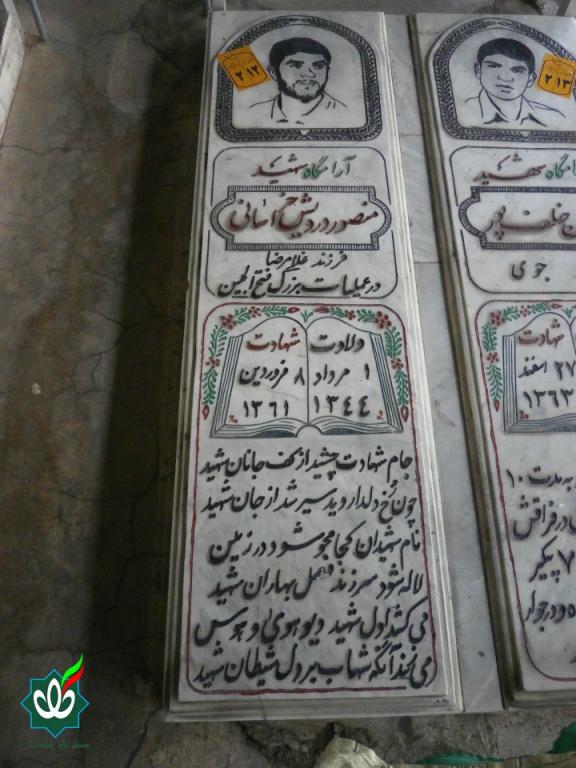 ۲۱۲
آرامگاه شهید
منصور درویش خراسانی
فرزند غلامرضا
در عملیات بزرگ فتح المبین
ولادت
۱ مرداد
۱۳۴۴
شهادت
۸ فروردین
۱۳۶۱
جام شهادت چشید از کف جانان شهید
چون رخ دلدار دید سیر شد از جان شهید
نام شهیدان کجا محو شود در زمین
لاله شود سر زند فصل بهاران شهید
می کشد اول شهید دیو هوی و هوس
می زند آنگه شهاب بر دل شیطان شهید
۲۱۳
آرامگاه شهید
خلف پور
جوی
شهادت
۲۷ اسفند
۱۳۶۳
به مدت ۱۰
در فراقش
۷ پیکر
و در جوار